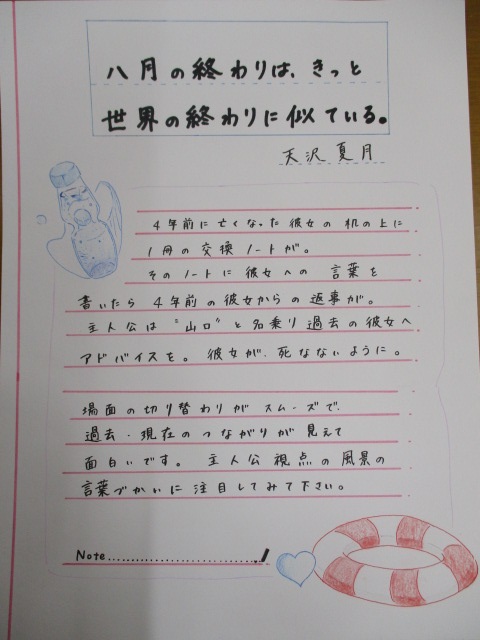 八月の終わりは、きっと
世界の終わりに似ている。
天沢夏月
4年前に亡くなった彼女の机の上に
1冊の交換ノートが。
そのノートに彼女への言葉を
書いたら4年前の彼女からの返事が。
主人公は"山口"と名乗り過去の彼女へ
アドバイスを。彼女が、死なないように。
場面の切り替わりがスムーズで、
過去・現在のつながりが見えて
面白いです。主人公視点の風景の
言葉づかいに注目してみて下さい。
Note